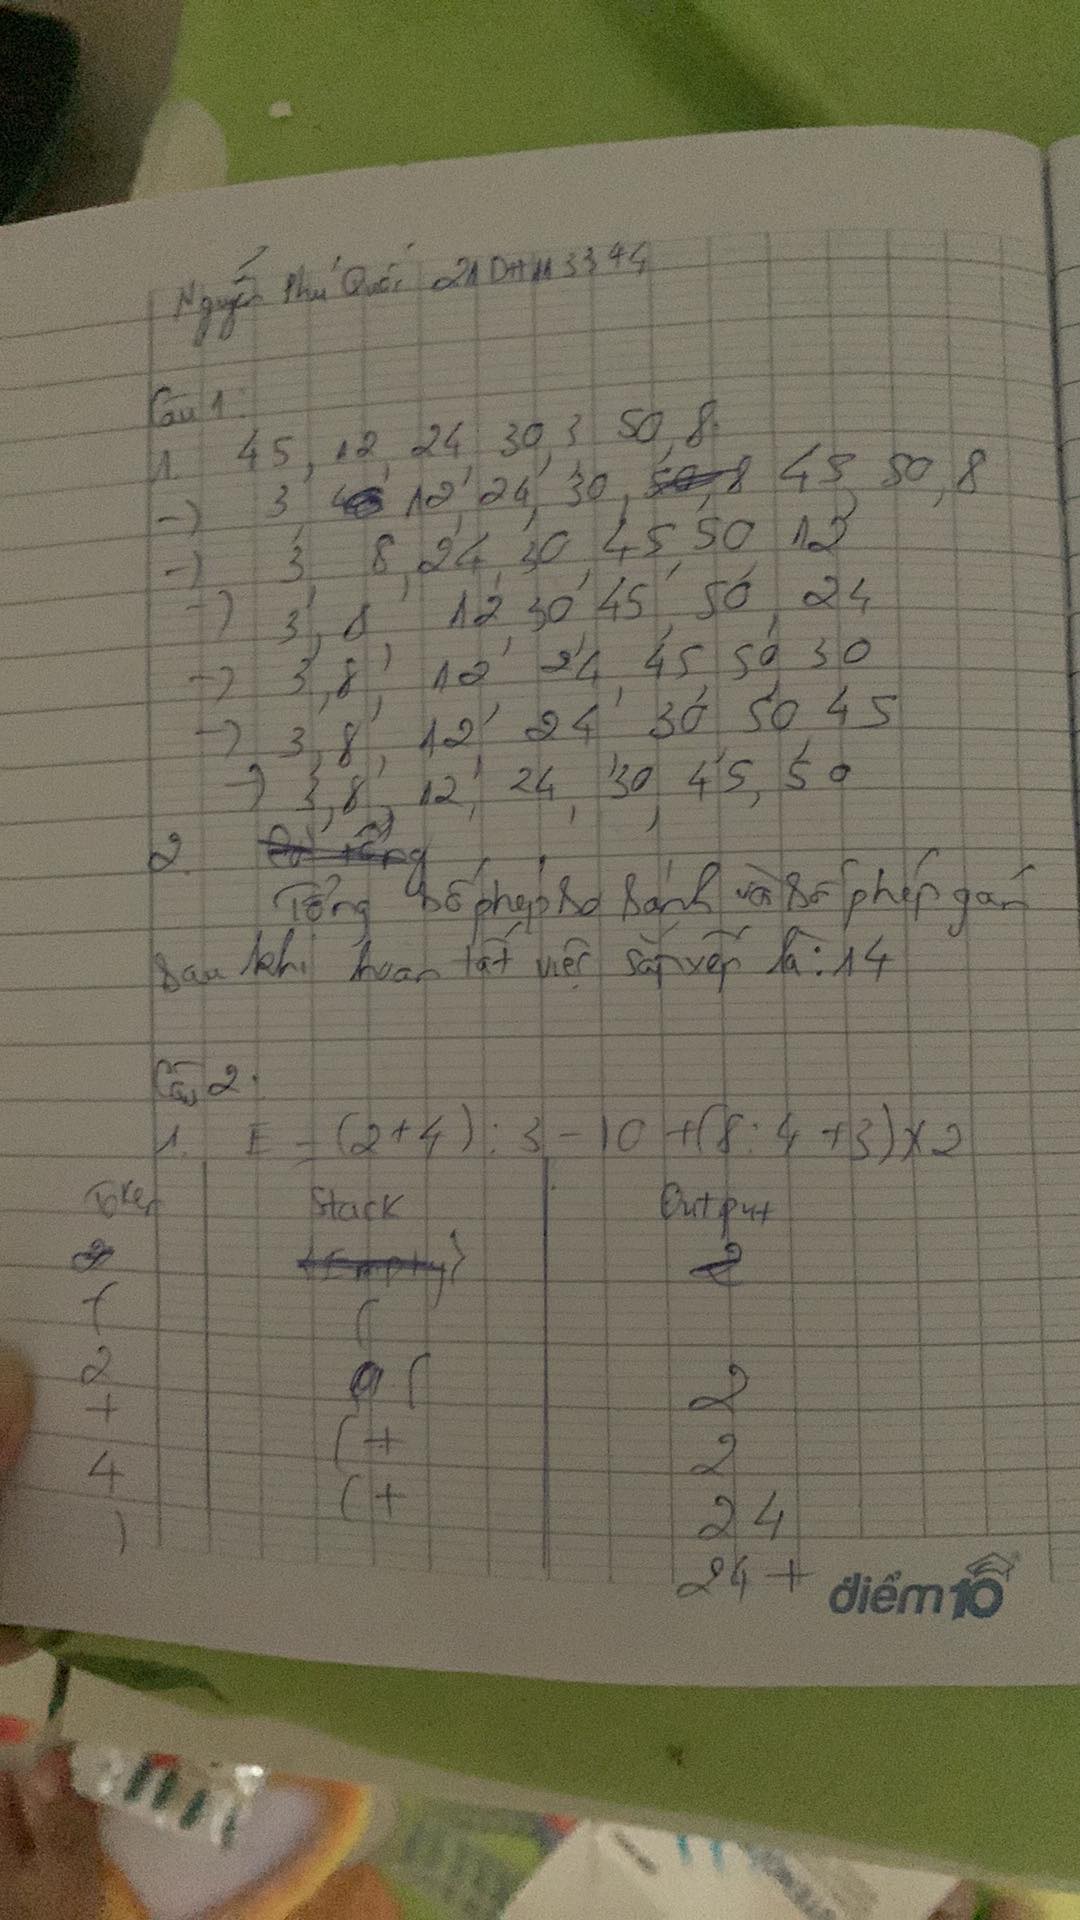 Nguyễn Phú Quốc 21DH113344
Câu 1:
1. 45, 12, 24, 30, 3, 50, 8.
-) 3, 12, 24, 30, 45, 50, 8
-) 3, 8, 24, 30, 45, 50 12
-) 3, 8, 12, 30, 45, 50, 24
-) 3, 8, 12, 24, 45 50 30
-) 3, 8, 12, 24, 30 50 45
-) 3, 8, 12, 24, 30, 45, 50
2.
Tổng số phép so sánh và số phép gán
sau khi hoàn tất việc sắp xếp là: 14
Câu 2:
1. E = (2+4) : 3 - 10 + (8 : 4 + 3) x 2
Token Stack Output
( (
2 ( 2
+ (+ 2
4 (+ 24
) 24+
điểm10